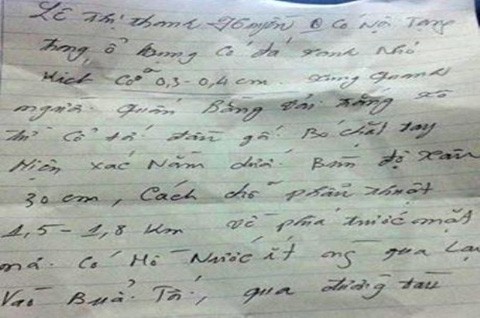 Lê Thị Thanh Huyền Có Nội Tạng
trong ổ bụng Có đá xanh Nhỏ
Kích Cỡ 0,3-0,4 cm. xung quanh
người. Quấn Bằng vải trắng
thi Có đầu gối Bó chặt tay
Hiện xác Nằm dưới Bùn độ sâu
30 cm, Cách chỗ phẫu thuật
1,5-1,8 Km về phía trước mặt
Có Hố Nước ít qua Lại
Vào Buổi Tối, qua đường tàu